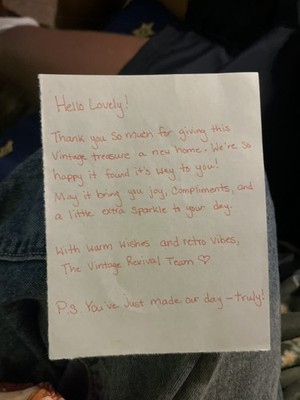 Hello Lovely!
Thank you so much for giving this
vintage treasure a new home. We're so
happy it found it's way to you!
May it bring you joy, compliments, and
a little extra sparkle to your day.
With warm wishes and retro vibes,
The Vintage Revival Team ♡
P.S. You've just made our day – truly!